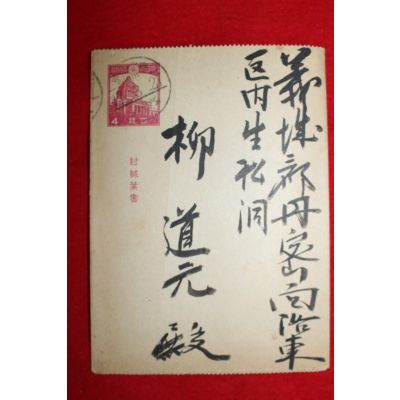 義城郡丹密面洛東
区内生松洞
柳道元殿
4
封緘葉書